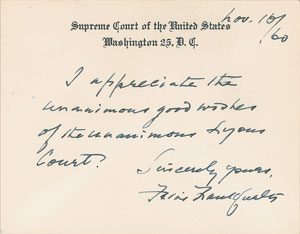 Nov. 18/60
Supreme Court of the United States
Washington 25, D. C.
I appreciate the
unanimous good wishes
of the unanimous
Court!
Sincerely yours,
Felix Frankfurter